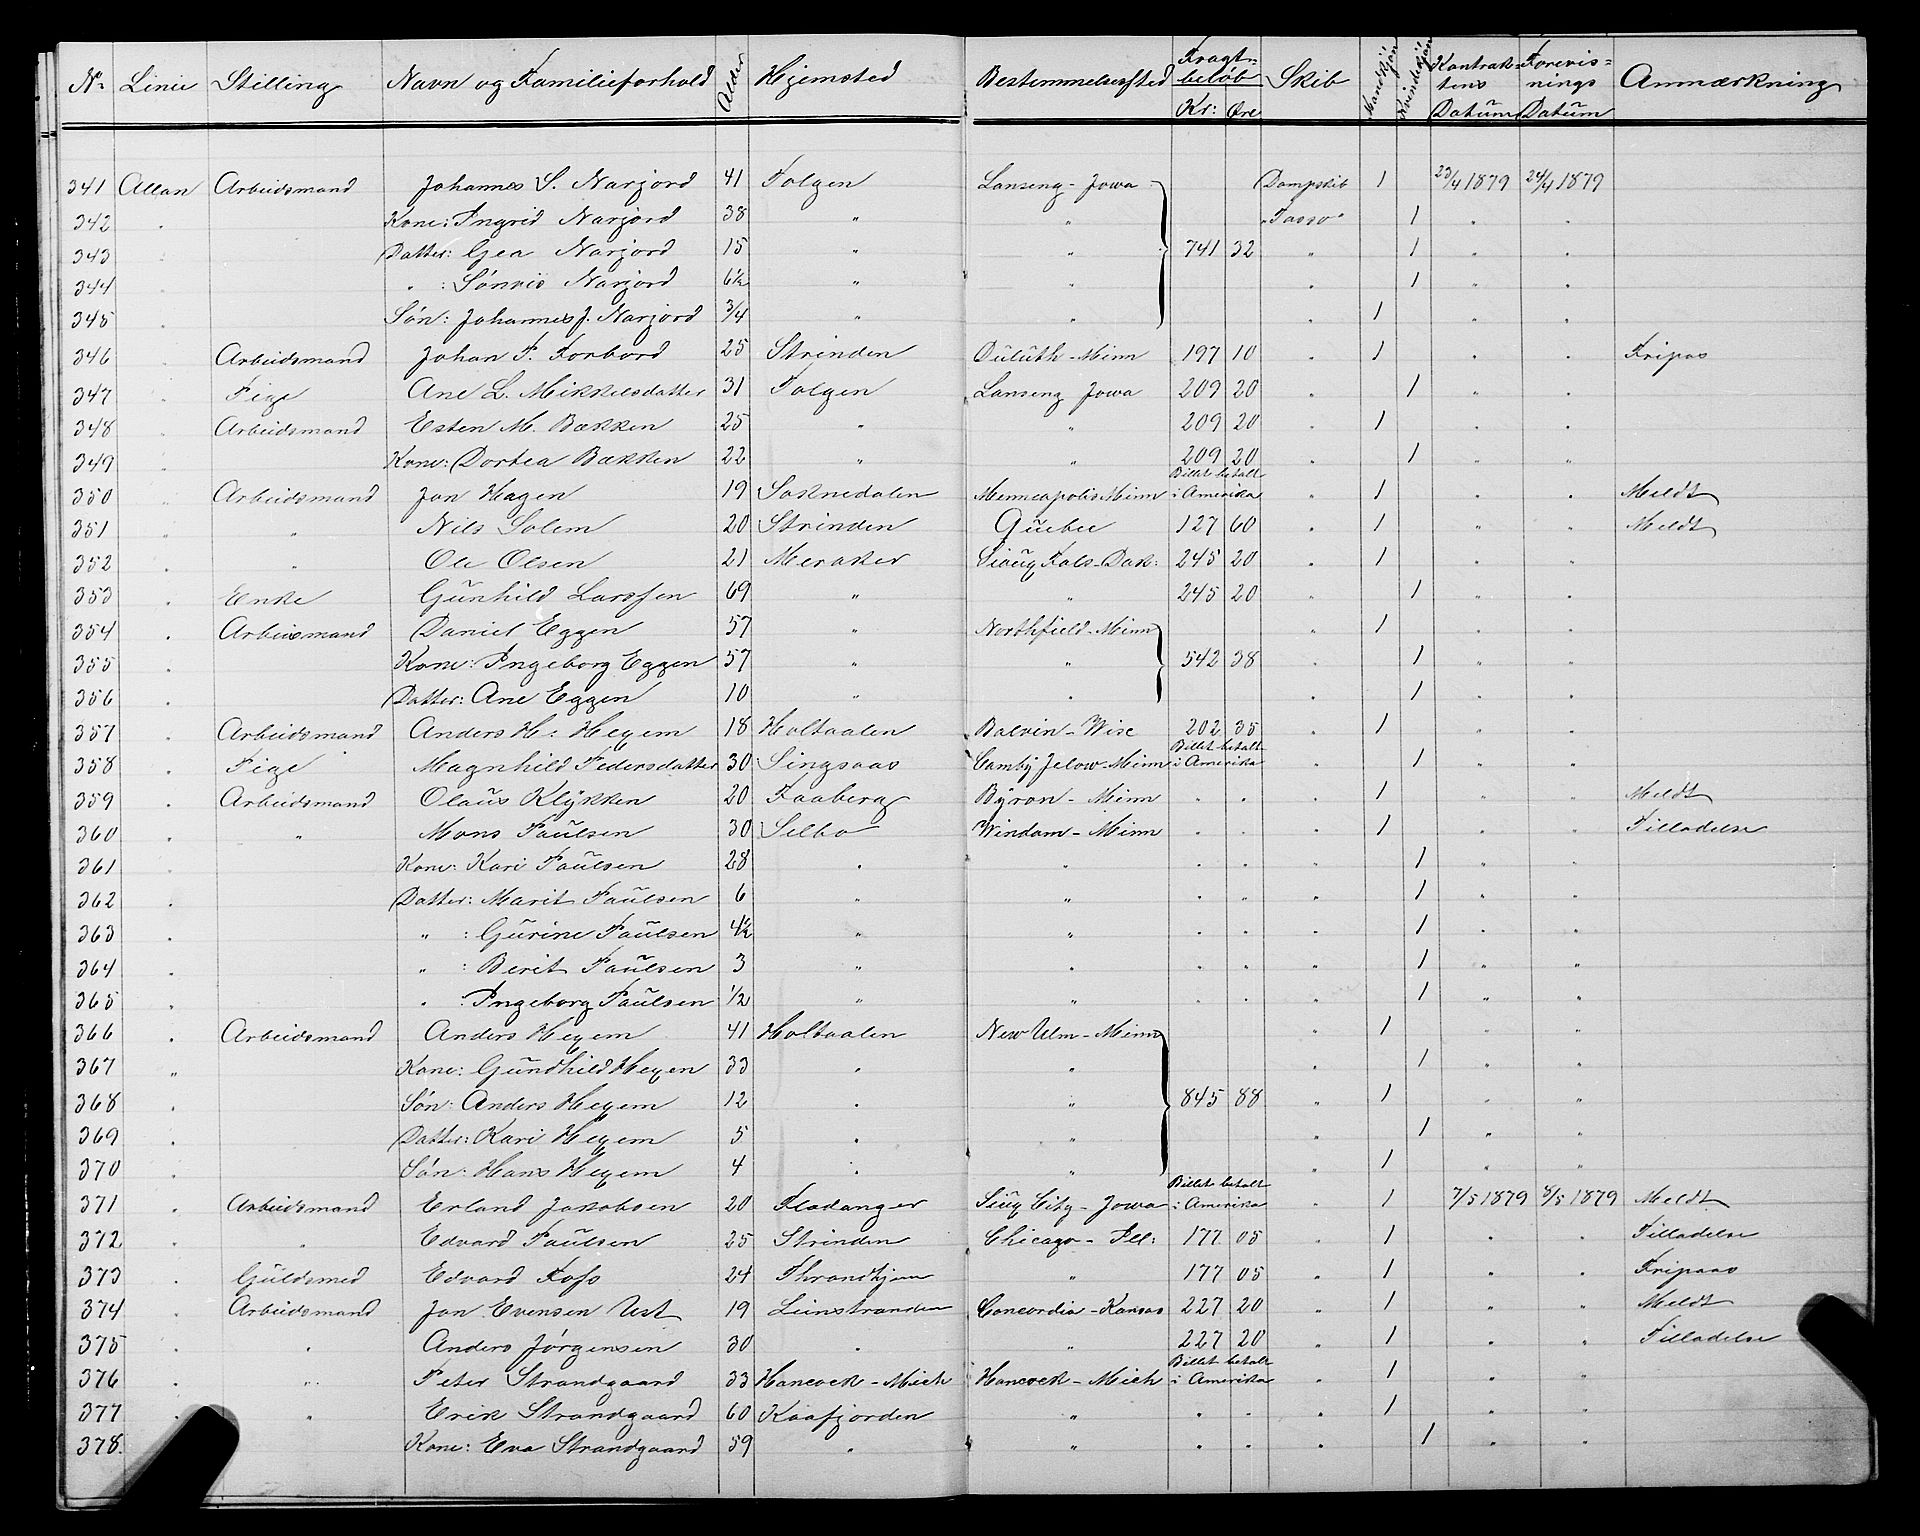 No Linie Stilling Navn og Familieforhold Alder Hjemsted Bestemmelsessted Fragtbeløb Kr: Øre Skib Mandkjøn Kvindekjøn Kontraktens Datum Forevisnings Datum Anmærkning
341 Allan Arbeidsmand Johannes S. Narjord 41 Tolgen Lanseng - Jowa Dampskib 1 23/4 1879 24/4 1879
342 " Kone: Ingrid Narjord 38 " " "Tasso" 1 " "
343 " Datter: Gea Narjord 15 " " 741 32 " 1 " "
344 " " : Sønvis Narjord 6½ " " " 1 " "
345 " Søn: Johannes J. Narjord ¾ " " " 1 " "
346 " Arbeidsmand Johan P. Forbord 25 Strinden Duluth - Minn 197 10 " 1 " " Fripas
347 " Pige Ane L. Mikkelsdatter 31 Tolgen Lanseng Jowa 209 20 " 1 " "
348 " Arbeidsmand Esten M. Bækken 25 " " 209 20 " 1 " "
349 " Kone: Dortea Bækken 22 " " 209 20 " 1 " "
350 " Arbeidsmand Jon Hagen 19 Soknedalen Minneapolis Minn Billet betalt i Amerika " 1 " " Meldt
351 " " Nils Solem 20 Strinden Quebec 127 60 " 1 " " Meldt
352 " " Ole Olsen 21 Meraker Sioux Fals - Dak: 245 20 " 1 " "
353 " Enke Gunhild Larssen 69 " " 245 20 " 1 " "
354 " Arbeismand Daniel Eggen 57 " Northfield - Minn " 1 " "
355 " Kone: Ingeborg Eggen 57 " " 542 38 " 1 " "
356 " Datter: Ane Eggen 10 " " " 1 " "
357 " Arbeidsmand Anders H: Hegem 18 Holtaalen Balvin - Wisc 202 35 " 1 " "
358 " Pige Magnhild Pedersdatter 30 Singsaas Camby Jelow - Minn Billet betalt i Amerika " 1 " "
359 " Arbeidsmand Olaus Klykken 20 Faaberg Byron - Minn " " " 1 " " Meldt
360 " " Mons Paulsen 30 Selbo Windam - Minn " " " 1 " " Tilladelse
361 " Kone: Kari Paulsen 28 " " " " " 1 " "
362 " Datter: Marit Paulsen 6 " " " " " 1 " "
363 " " : Gurine Paulsen 4½ " " " " " 1 " "
364 " " : Berit Paulsen 3 " " " " " 1 " "
365 " " : Ingeborg Paulsen ½ " " " " " 1 " "
366 " Arbeidsmand Anders Hegem 41 Holtaalen New Ulm - Minn " 1 " "
367 " Kone: Gundhild Hegen 33 " " " 1 " "
368 " Søn: Anders Hegem 12 " " 845 88 " 1 " "
369 " Datter: Kari Hegem 5 " " " 1 " "
370 " Søn: Hans Hegem 4 " " " 1 " "
371 " Arbeidsmand Erland Jakobsen 20 Fladanger Siuq City - Jowa Billet betalt i Amerika " 1 7/5 1879 8/5 1879 Meldt
372 " " Edvard Paulsen 25 Strinden Chicago - Ill: 177 05 " 1 " " Tilladelse
373 " Guldsmed Edvard Foss 24 Throndhjem " 177 05 " 1 " " Fripass
374 " Arbeidsmand Jon Evensen Ust 19 Leinstranden Concordia - Kansas 227 20 " 1 " " Meldt
375 " " Anders Jørgensen 30 " " 227 20 " 1 " " Tilladelse
376 " " Peter Strandgaard 33 Hancock - Mich Hancock - Mich Billet betalt i Amerika " 1 " "
377 " " Erik Strandgaard 60 Kaafjorden " " " " 1 " "
378. Kone: Eva Strandgaard 59 " " " " " 1 " "